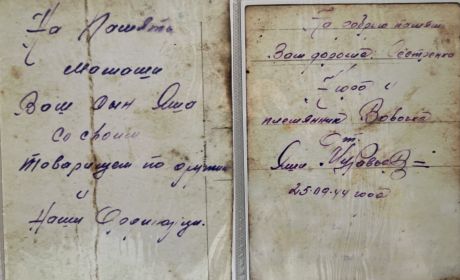 На Память
Мамаши
Ваш Сын Яша
со своим
товарищем по
и
Наши
На добрую память
Вам дорогая Сестренка
Люба и
племянник Вовочка
От
Яши
25-09-44 года